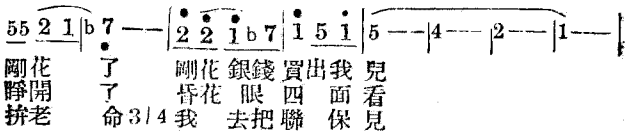 55 2 1 | b 7 — — | 2 2 1 b 7 | 1 5 1 | 5 — — | 4 — — | 2 — — | 1 — — ‖
剛花 了 剛花 銀錢 買出我 兒
睜開 了 昏花 眼 四 面 看
拚老 命 3/4 我 去把 聯 保 見